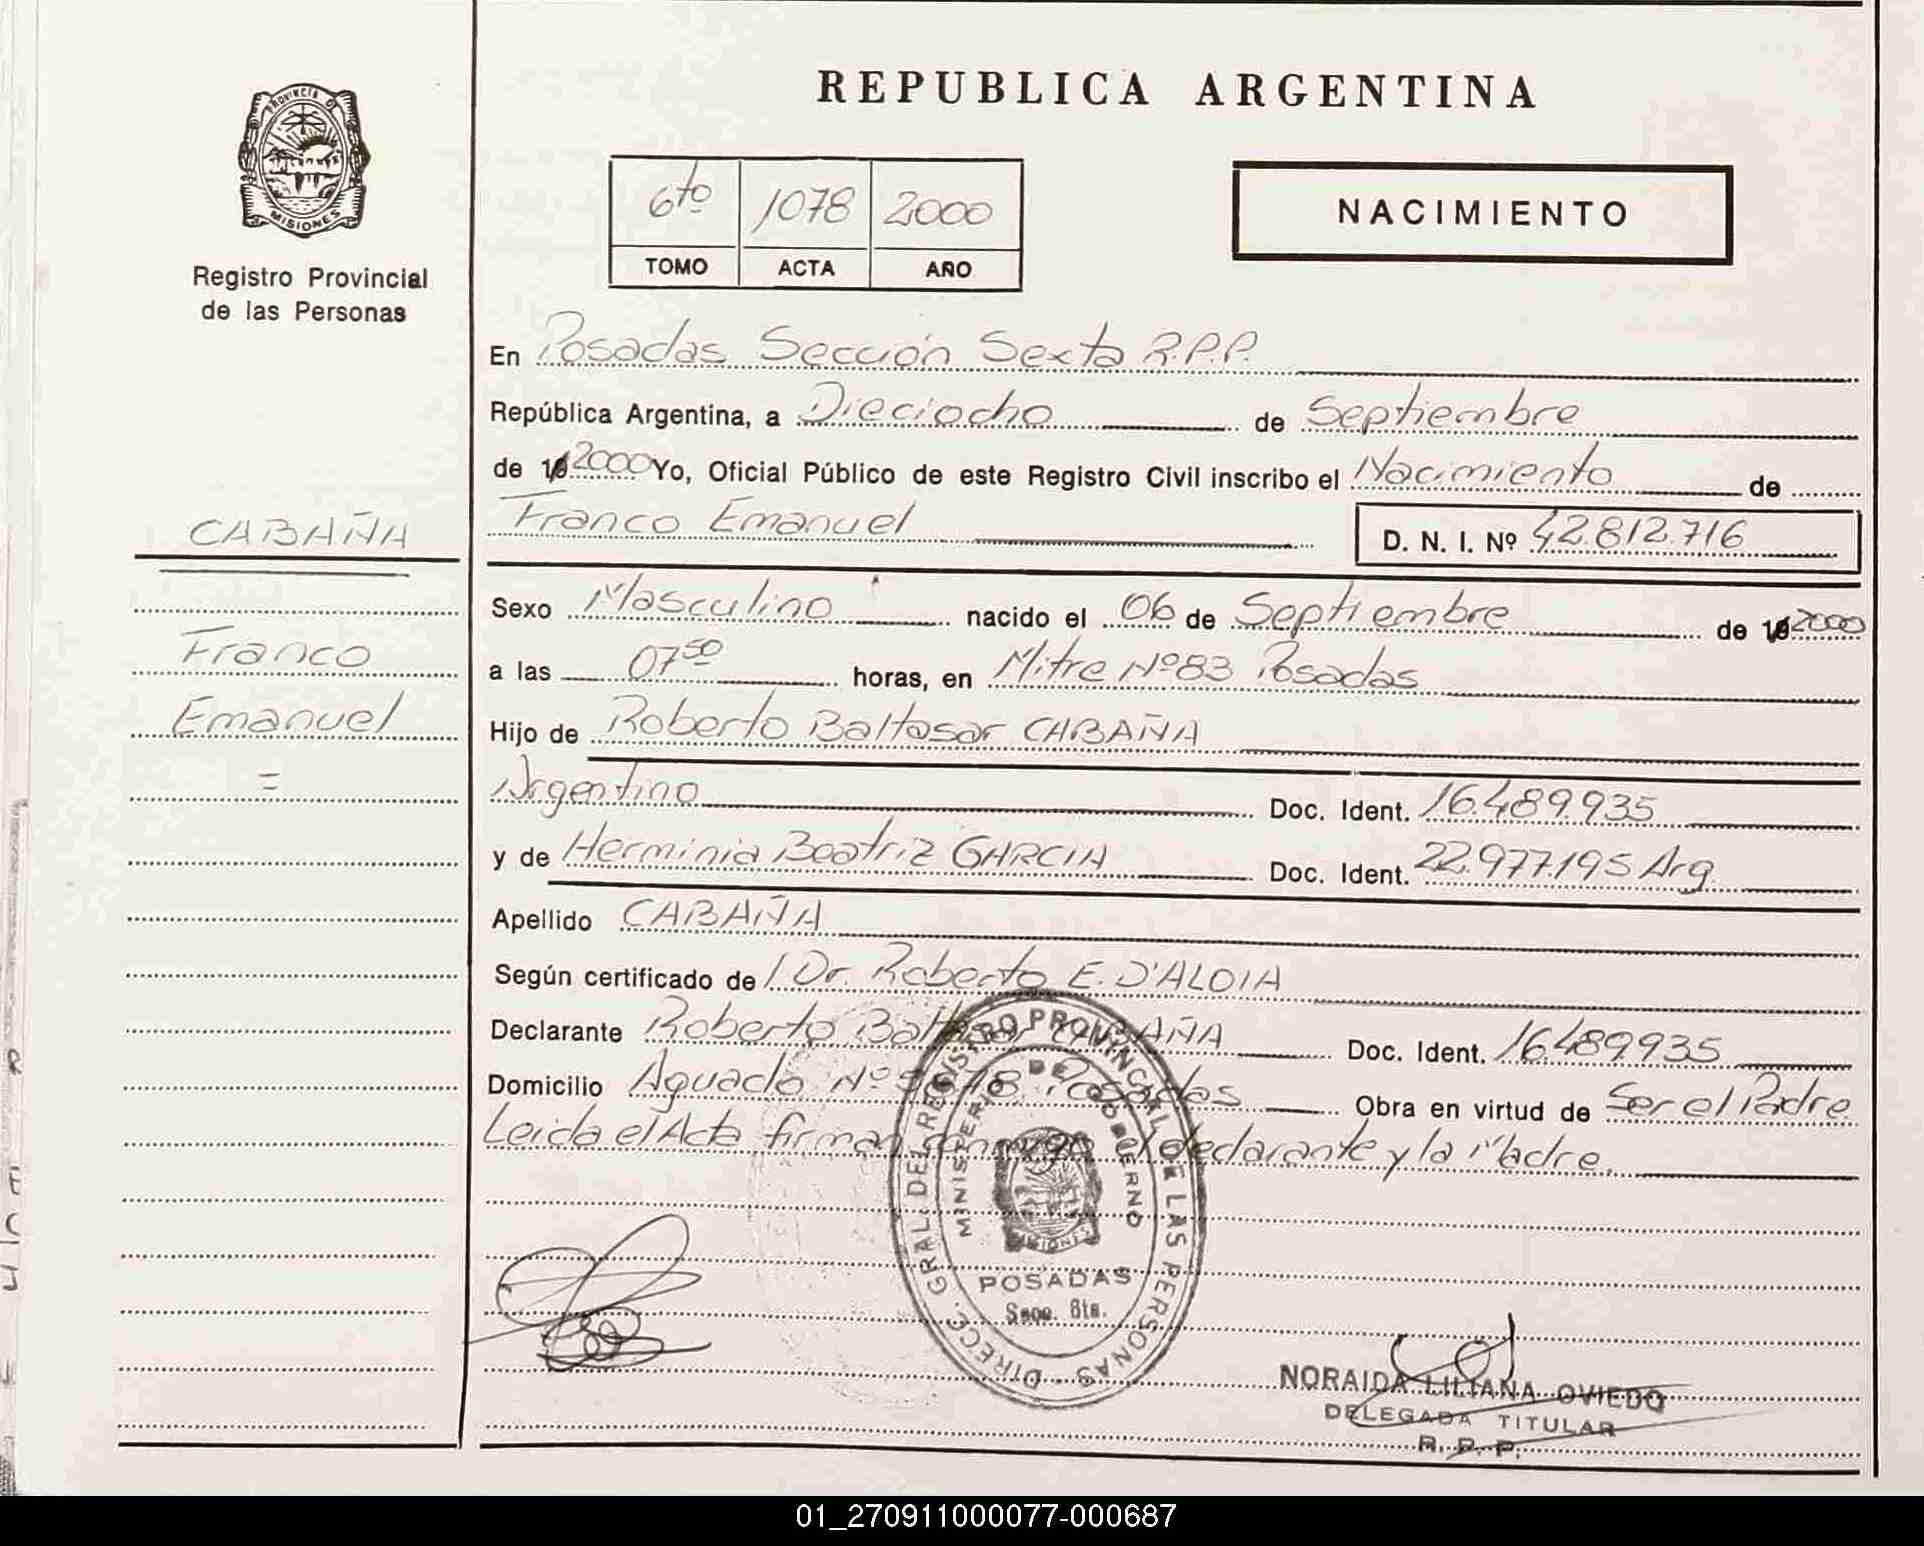 REPUBLICA ARGENTINA
PROVINCIA DE
MISIONES
Registro Provincial
de las Personas
6to 1078 2000
TOMO ACTA AÑO
NACIMIENTO
En Posadas Sección Sexta R.P.P.
República Argentina, a Dieciocho de Septiembre
de 19 2000 Yo, Oficial Público de este Registro Civil inscribo el Nacimiento de
Franco Emanuel D. N. I. Nº 42.812.716
CABAÑA
Franco
Emanuel
=
Sexo Masculino nacido el 06 de Septiembre de 19 2000
a las 07 50 horas, en Mitre Nº 83 Posadas
Hijo de Roberto Baltasar CABAÑA
Argentino Doc. Ident. 16.489.935
y de Herminia Beatriz GARCIA Doc. Ident. 22.977.195 Arg.
Apellido CABAÑA
Según certificado de l Dr. Roberto E. D'ALOIA
Declarante Roberto Baltasar CABAÑA Doc. Ident. 16.489.935
Domicilio Aguado Nº Posadas Obra en virtud de Ser el Padre
Leida el Acta firman conmigo el declarante y la Madre.
DIRECC. GRAL. DEL REGISTRO PROVINCIAL DE LAS PERSONAS
MINISTERIO DE GOBIERNO
MISIONES
POSADAS
Secc. 6ta.
NORAIDA LILIANA OVIEDO
DELEGADA TITULAR
R. P. P.
01_270911000077-000687